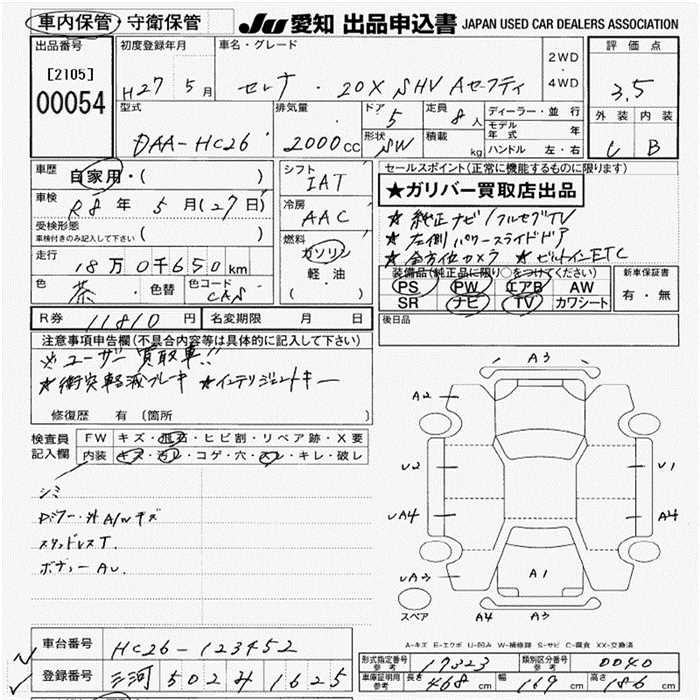 車内保管・守衛保管
JU 愛知 出品申込書 JAPAN USED CAR DEALERS ASSOCIATION
出品番号
[2105]
00054
初度登録年月
H27年5月
車名・グレード
セレナ ・ 20X SHV Aセーフティ
2WD
・
4WD
評価点
3.5
外装 内装
C B
型式
DAA-HC26
排気量
2000cc
ドア
5
形状
SW
定員
8人
積載
kg
ディーラー・並行
モデル年式 年
ハンドル 左・右
車歴
自家用・( )
車検
R8年5月(27日)
受検形態
車検付きのみ記入して下さい ( )
走行
18万0千650km
色
茶
色替
色コード
CAS
シフト
IAT
冷房
AAC
燃料
ガソリン
軽油
( )
セールスポイント(正常に機能するものに限ります)
★ガリバー買取店出品
★純正ナビ/フルセグTV
★左側パワースライドドア
★全方位カメラ ★ビルトインETC
装備品(純正品に限り○をつけてください)
PS PW エアB AW
SR ナビ TV カワシート
新車保証書
有・無
R券 11810円
名変期限 月 日
後日品
注意事項申告欄(不具合内容等は具体的に記入して下さい)
※ユーザー買取車!!
★衝突軽減ブレーキ ★インテリジェントキー
修復歴 有 (箇所
検査員
記入欄
FW キズ・飛石・ヒビ割・リペア跡・X要
内装 キズ・汚レ・コゲ・穴・スレ・キレ・破レ
シミ
ボディー AU
A3
A2
U2
U1
UA4
A4
A1
UA3
スペア
A4 A3
A-キズ E-エクボ U-凹み W-補修跡 S-サビ C-腐食 XX-交換済
車台番号 HC26-123452
登録番号 三河 502 み 1625
形式指定番号
参考
17323
類別区分番号
参考
0040
車庫証明用
参考
長さ 468cm 幅 169cm 高さ 186cm